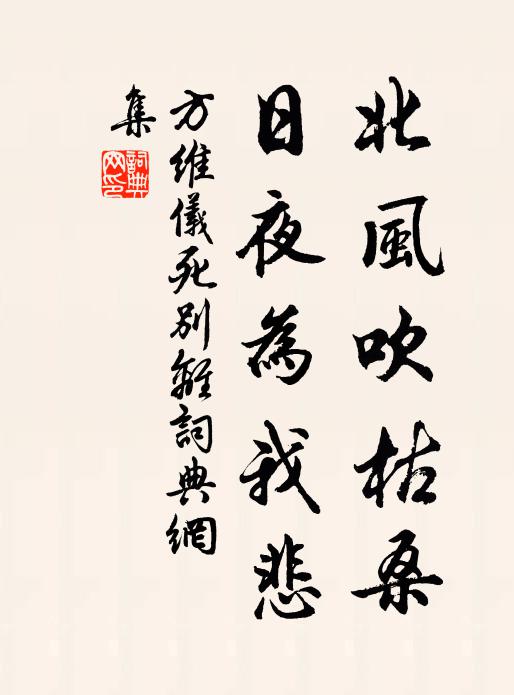 北風吹枯桑
日夜為我悲
方維儀死別離詞典網
集
詞典
网印